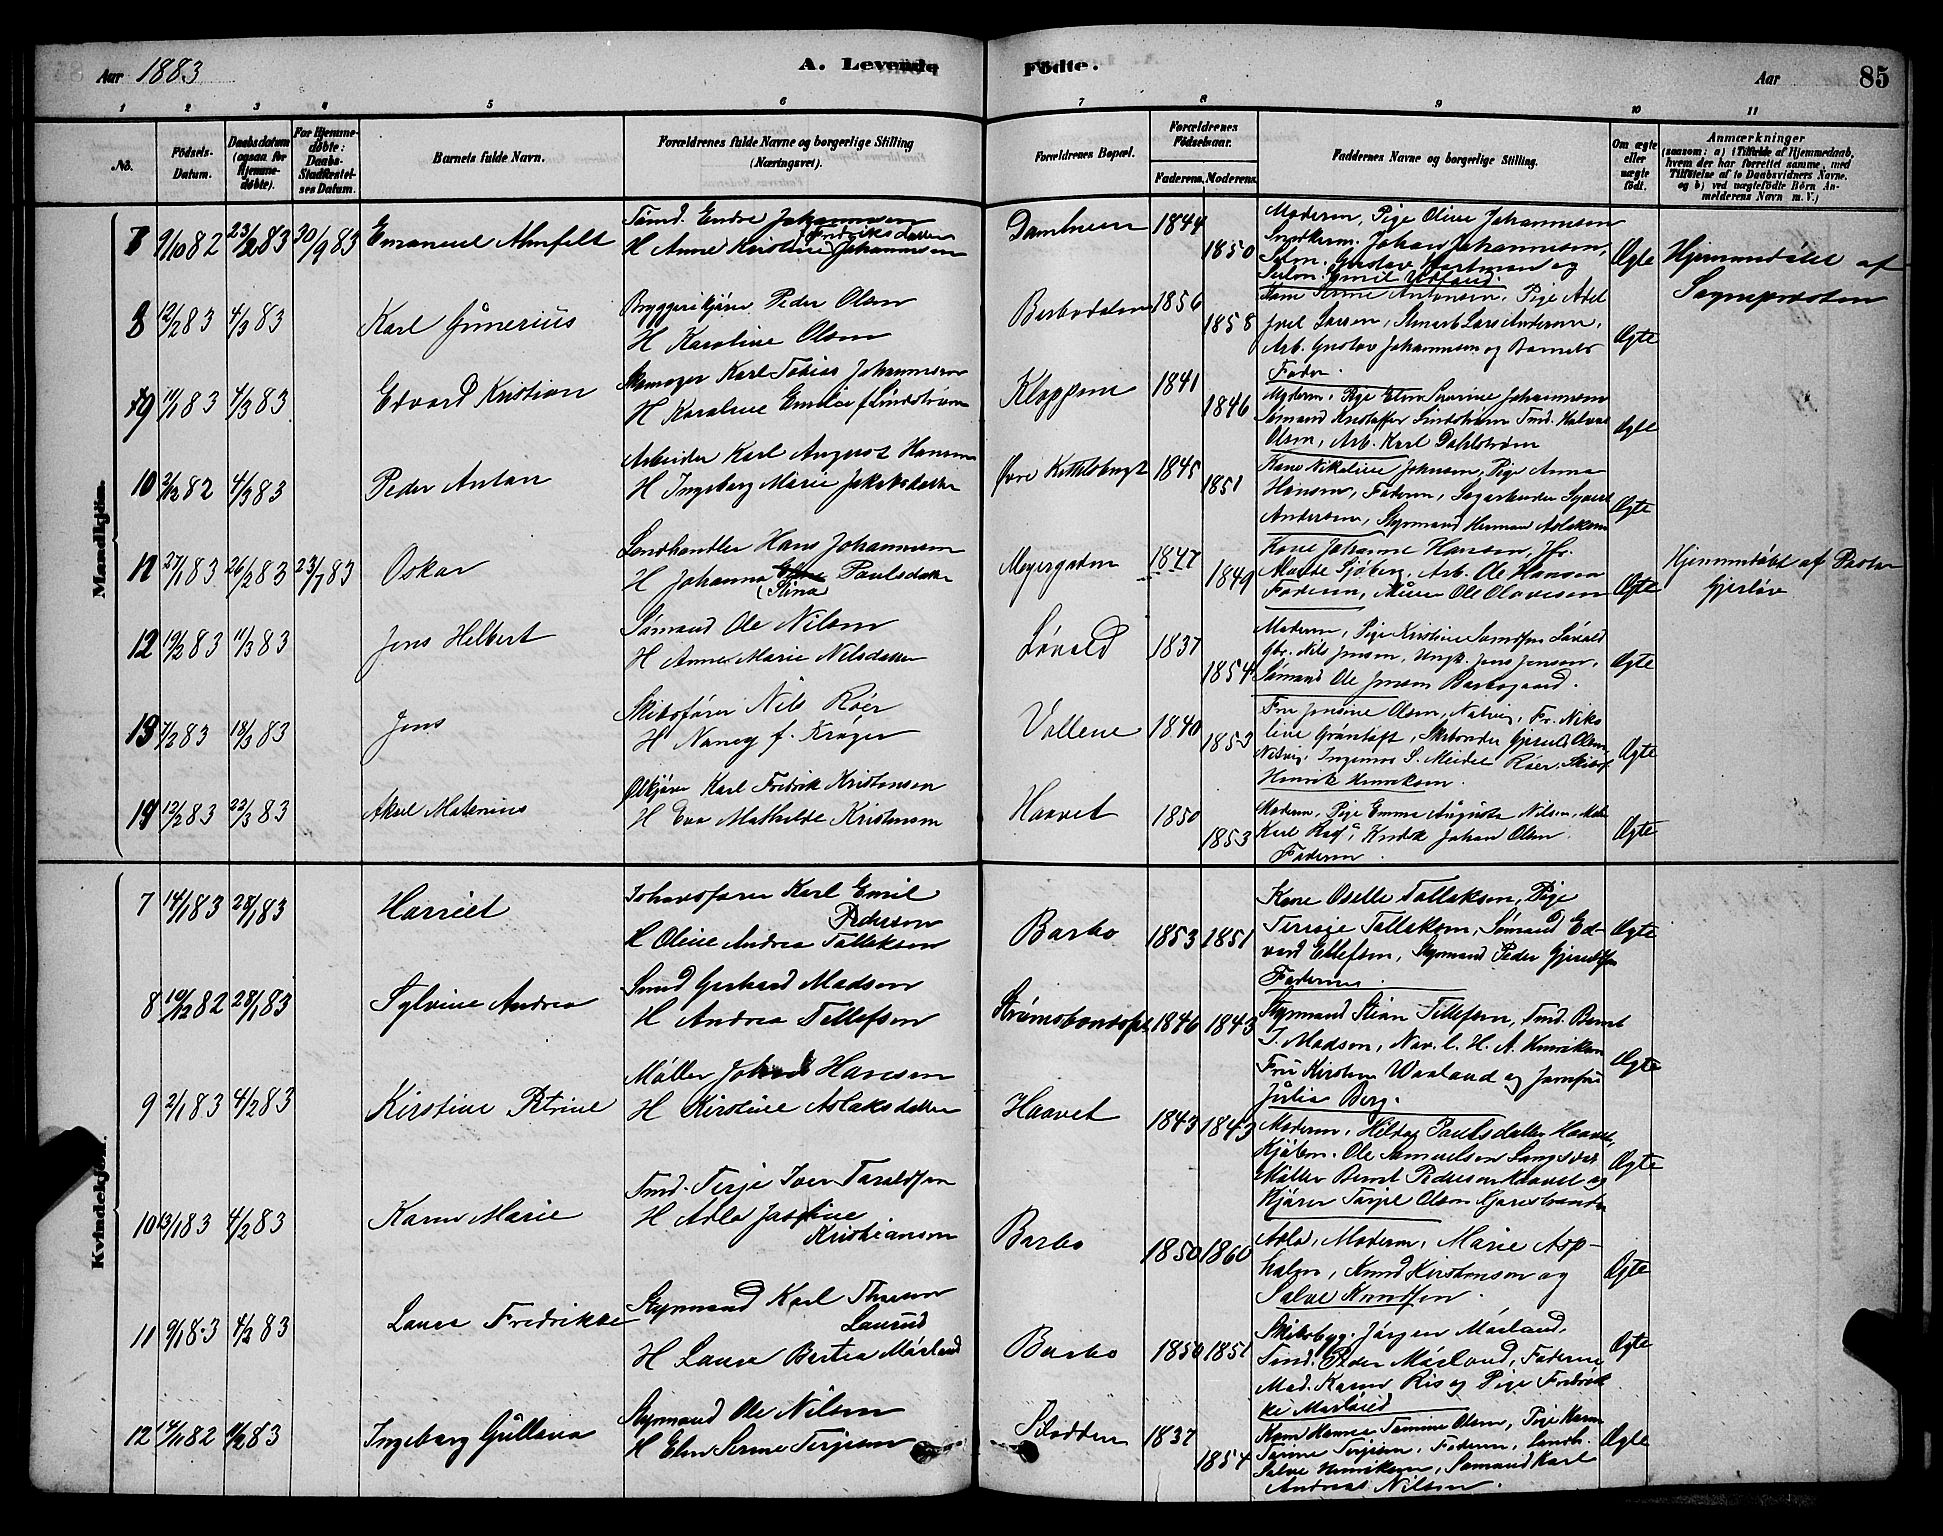 Aar 1883
A. Levende Fødte.
Aar
85
1 2 3 4 5 6 7 8 9 10 11
No.
Fødsels-Datum.
Daabsdatum (ogsaa for Hjemme-døbte).
For Hjemme-døbte: Daabs-Stadfæstel-ses Datum.
Barnets fulde Navn.
Forældrenes fulde Navne og borgerlige Stilling (Næringsvei).
Forældrenes Bopæl.
Forældrenes Fødselsaar.
Faderens. Moderens.
Faddernes Navne og borgerlige Stilling.
Om ægte eller uægte født.
Anmærkninger
(saasom: a) i Tilfælde af Hjemmedaab,
hvem der har forrettet samme, med
Tilføielse af to Daabsvidners Navne.
og b) ved uægtefødte Børn An-
melderens Navn m. V.)
Mandkjøn.
7 9/10 82 23/2 83 30/9 83 Emanuel Ahnfelt
Tømd. Endre Johannesen
H Anne Kirstine Fredriksdatter Johannesen
1844 1850
Moderen, Pige Oline Johannesen
Johan Johannesen,
Gustav Hartman og
Ægte
Hjemmedøbt af
Sognepresten
8 12/2 83 4/3 83 Karl Gunerius
Bryggerikjører Peder Olsen
H Karoline Olsen
Barbodalen 1856 1858
Antonsen, Pige Adel
Joel Larsen, Lars Andersen,
Arb. Gustav Johannesen og Barnets
Fader.
Ægte
9 11/1 83 4/3 83 Edvard Kristian
Skomager Karl Tobias Johannesen
H Karoline Emilie f Lindstrøm
Kloppene 1841 1846
Moderen, Pige Elen Severine Johannesen
Sømand Kristoffer Lindstrøm Tmd. Halvor
Olsen, Arb. Karl Dahlstrøm
Ægte
10 2/12 82 4/3 83 Peder Anton
Arbeider Karl August Hansen
H Ingeborg Marie Jakobsdatter
Øvre Kittelsbugt 1845 1851
Kone Nikoline Johnsen, Pige Anna
Hansen, Faderen, Sagarbeider Syvert
Andersen, Styrmand Herman Aslaksen
Ægte
11 27/1 83 26/2 83 23/7 83 Oskar
Landhandler Hans Johannesen
H Johanna Stina Paulsdatter
Meyergaden 1847 1849
Kone Johanne Hansen, Jfr.
Sjøberg, Arb. Ole Hansen
Faderen, Murer Ole Olavesen
Ægte
Hjemmedøbt af Pastor
Gjerløv
12 19/2 83 11/3 83 Jens Helbert
Sømand Ole Nilsen
H Anne Marie Nilsdatter
Løvold 1837 1854
Moderen, Pige Kirstine Løvold
Gbr. Nils Jensen, Ungk. Jens Jensen,
Sømand Ole Jensen Barbogaard.
Ægte
13 7/2 83 18/3 83 Jens
Skibsfører Nils Röer
H Nancy f. Krøger
Vollene 1840 1853
Fru Jensine Olsen, Natvig, Fr. Niko
line Grøntoft, Skibsreder Gjeruld Olsen
Natvig, Ingeniør S. Meidel Röer, Skibsf
Henrik Henriksen.
Ægte
14 12/2 83 22/3 83 Aksel Maternius
Ølkjører Karl Fredrik Kristensen
H Eva Mathilde Kristensen
Haavet 1850 1853
Moderen, Pige Emma Augusta Nilsen,
Karl Johan Olsen
Faderen.
Ægte
Kvindekjøn.
7 14/1 83 28/1 83 Harriet
Karl Emil
Pedersen
H Oline Andrea Tallaksen
Barbo 1853 1851
Kone Oselle Tallaksen, Pige
Teresie Tallaksen, Sømand Ed-
vard Ellefsen, Styrmand Peder Gjeruldsen
Faderen.
Ægte
8 10/12 82 28/1 83 Sylvine Andrea
Smed Gerhard Madsen
H Andrea Tellefsen
1846 1843
Styrmand Stian Tellefsen, Tmd. Bernt
T. Madsen, Nav. l. H. A. Henriksen
Fru Kirsten Waaland og Jomfru
Julia Berg.
Ægte
9 2/1 83 4/2 83 Kirstine Petrine
Møller Hansen
H Kirstine Aslaksdatter
Haavet 1843 1843
Moderen, Hilda Paulsdatter Haavet,
Kjøbm. Ole Samuelsen Langsæ
Møller Bernt Pedersen Haavet og
Kjører Terje Olsen
Ægte
10 13/1 83 4/2 83 Karen Marie
Tmd. Terje Iver Taraldsen
H Adla Josefine
Kristiansen
Barbo 1850 1860
Adla, Moderen, Marie Asp-
holm, Knud Kirstensen og
Salve Knudsen.
Ægte
11 9/1 83 4/2 83 Laura Fredrikke
Styrmand Karl
Laurud
H Laura Bertea Mørland
Barbo 1850 1851
Skibsbyg. Jørgen Mørland,
Tmd. Peder Mørland, Faderen
Mad. Karen Ris og Pige Fredrik
ke Mørland
Ægte
12 82 83 Ingeborg Gullava
Styrmand Ole Nilsen
H Elen Serine Terjesen
Blødden 1837 1854
Kone Hanna Tomine Olsen, Pige Karen
Tomine Terjesen, Faderen, Landh.
Salve Henriksen, Sømand Karl
Andreas Nilsen.
Ægte